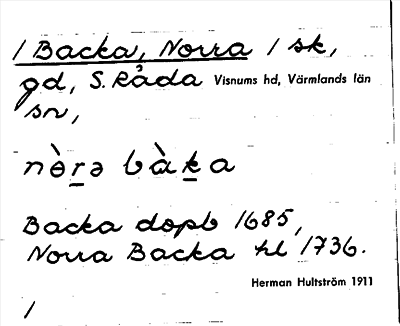 / Backa, Norra / sk,
gd, S. Råda Visnums hd, Värmlands län
sn,
nò̱rə bàḵa
Backa dopb 1685,
Norra Backa hl 1736.
Herman Hultström 1911
/